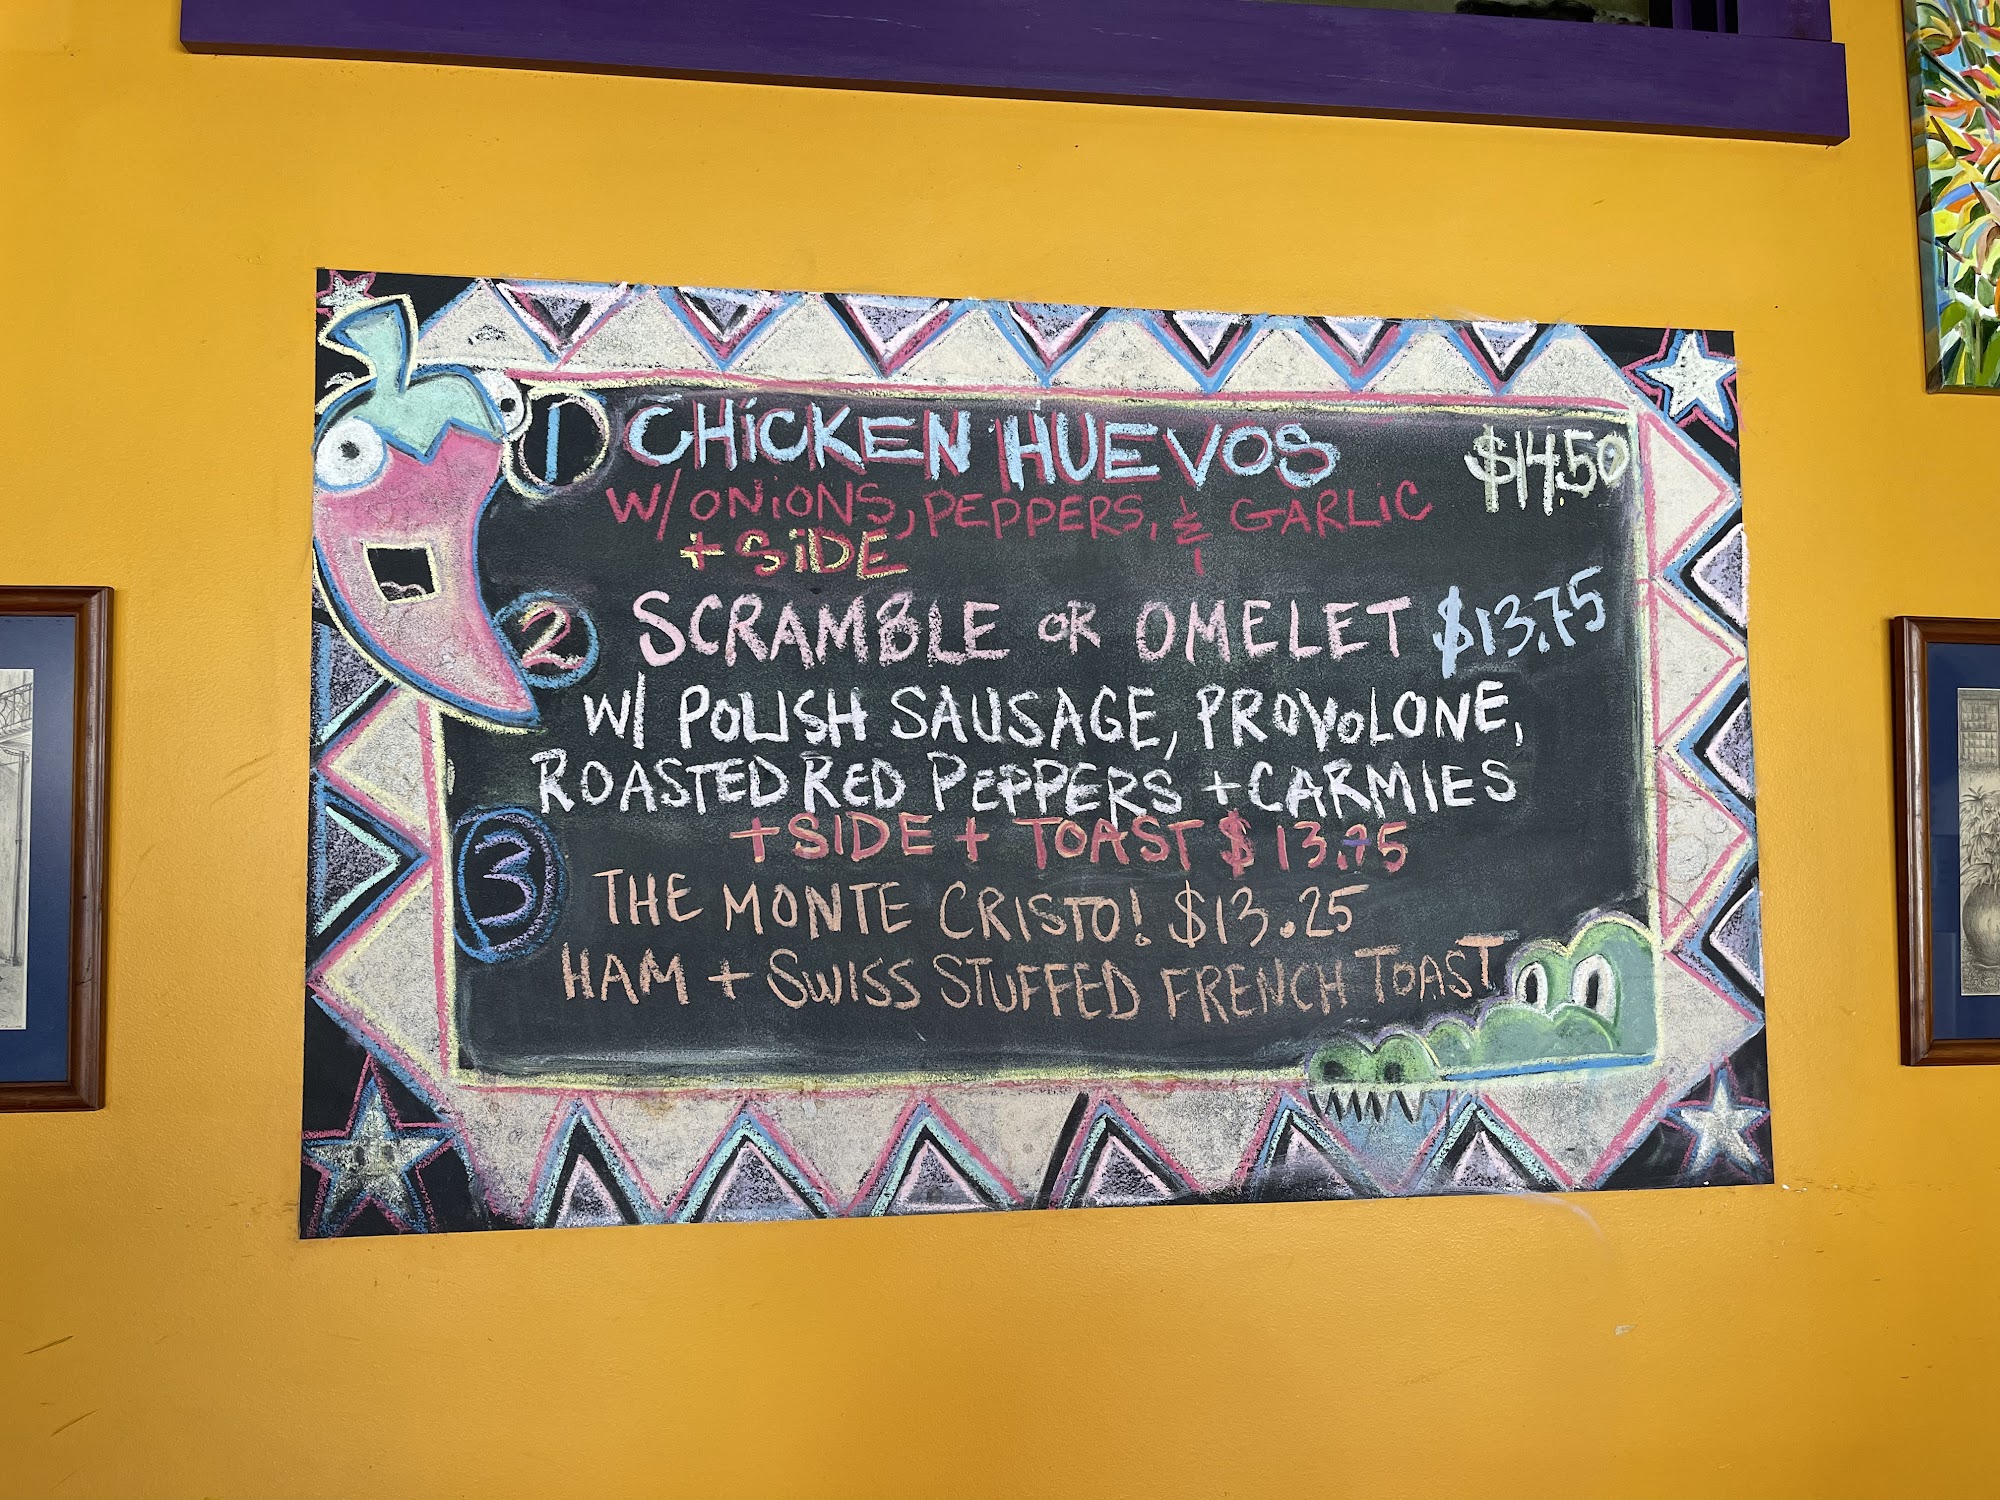 1 CHICKEN HUEVOS $14.50
W/ ONIONS, PEPPERS, & GARLIC
+ SIDE
2 SCRAMBLE OR OMELET $13.75
W/ POLISH SAUSAGE, PROVOLONE,
ROASTED RED PEPPERS + CARMIES
+ SIDE + TOAST $13.75
3 THE MONTE CRISTO! $13.25
HAM + SWISS STUFFED FRENCH TOAST